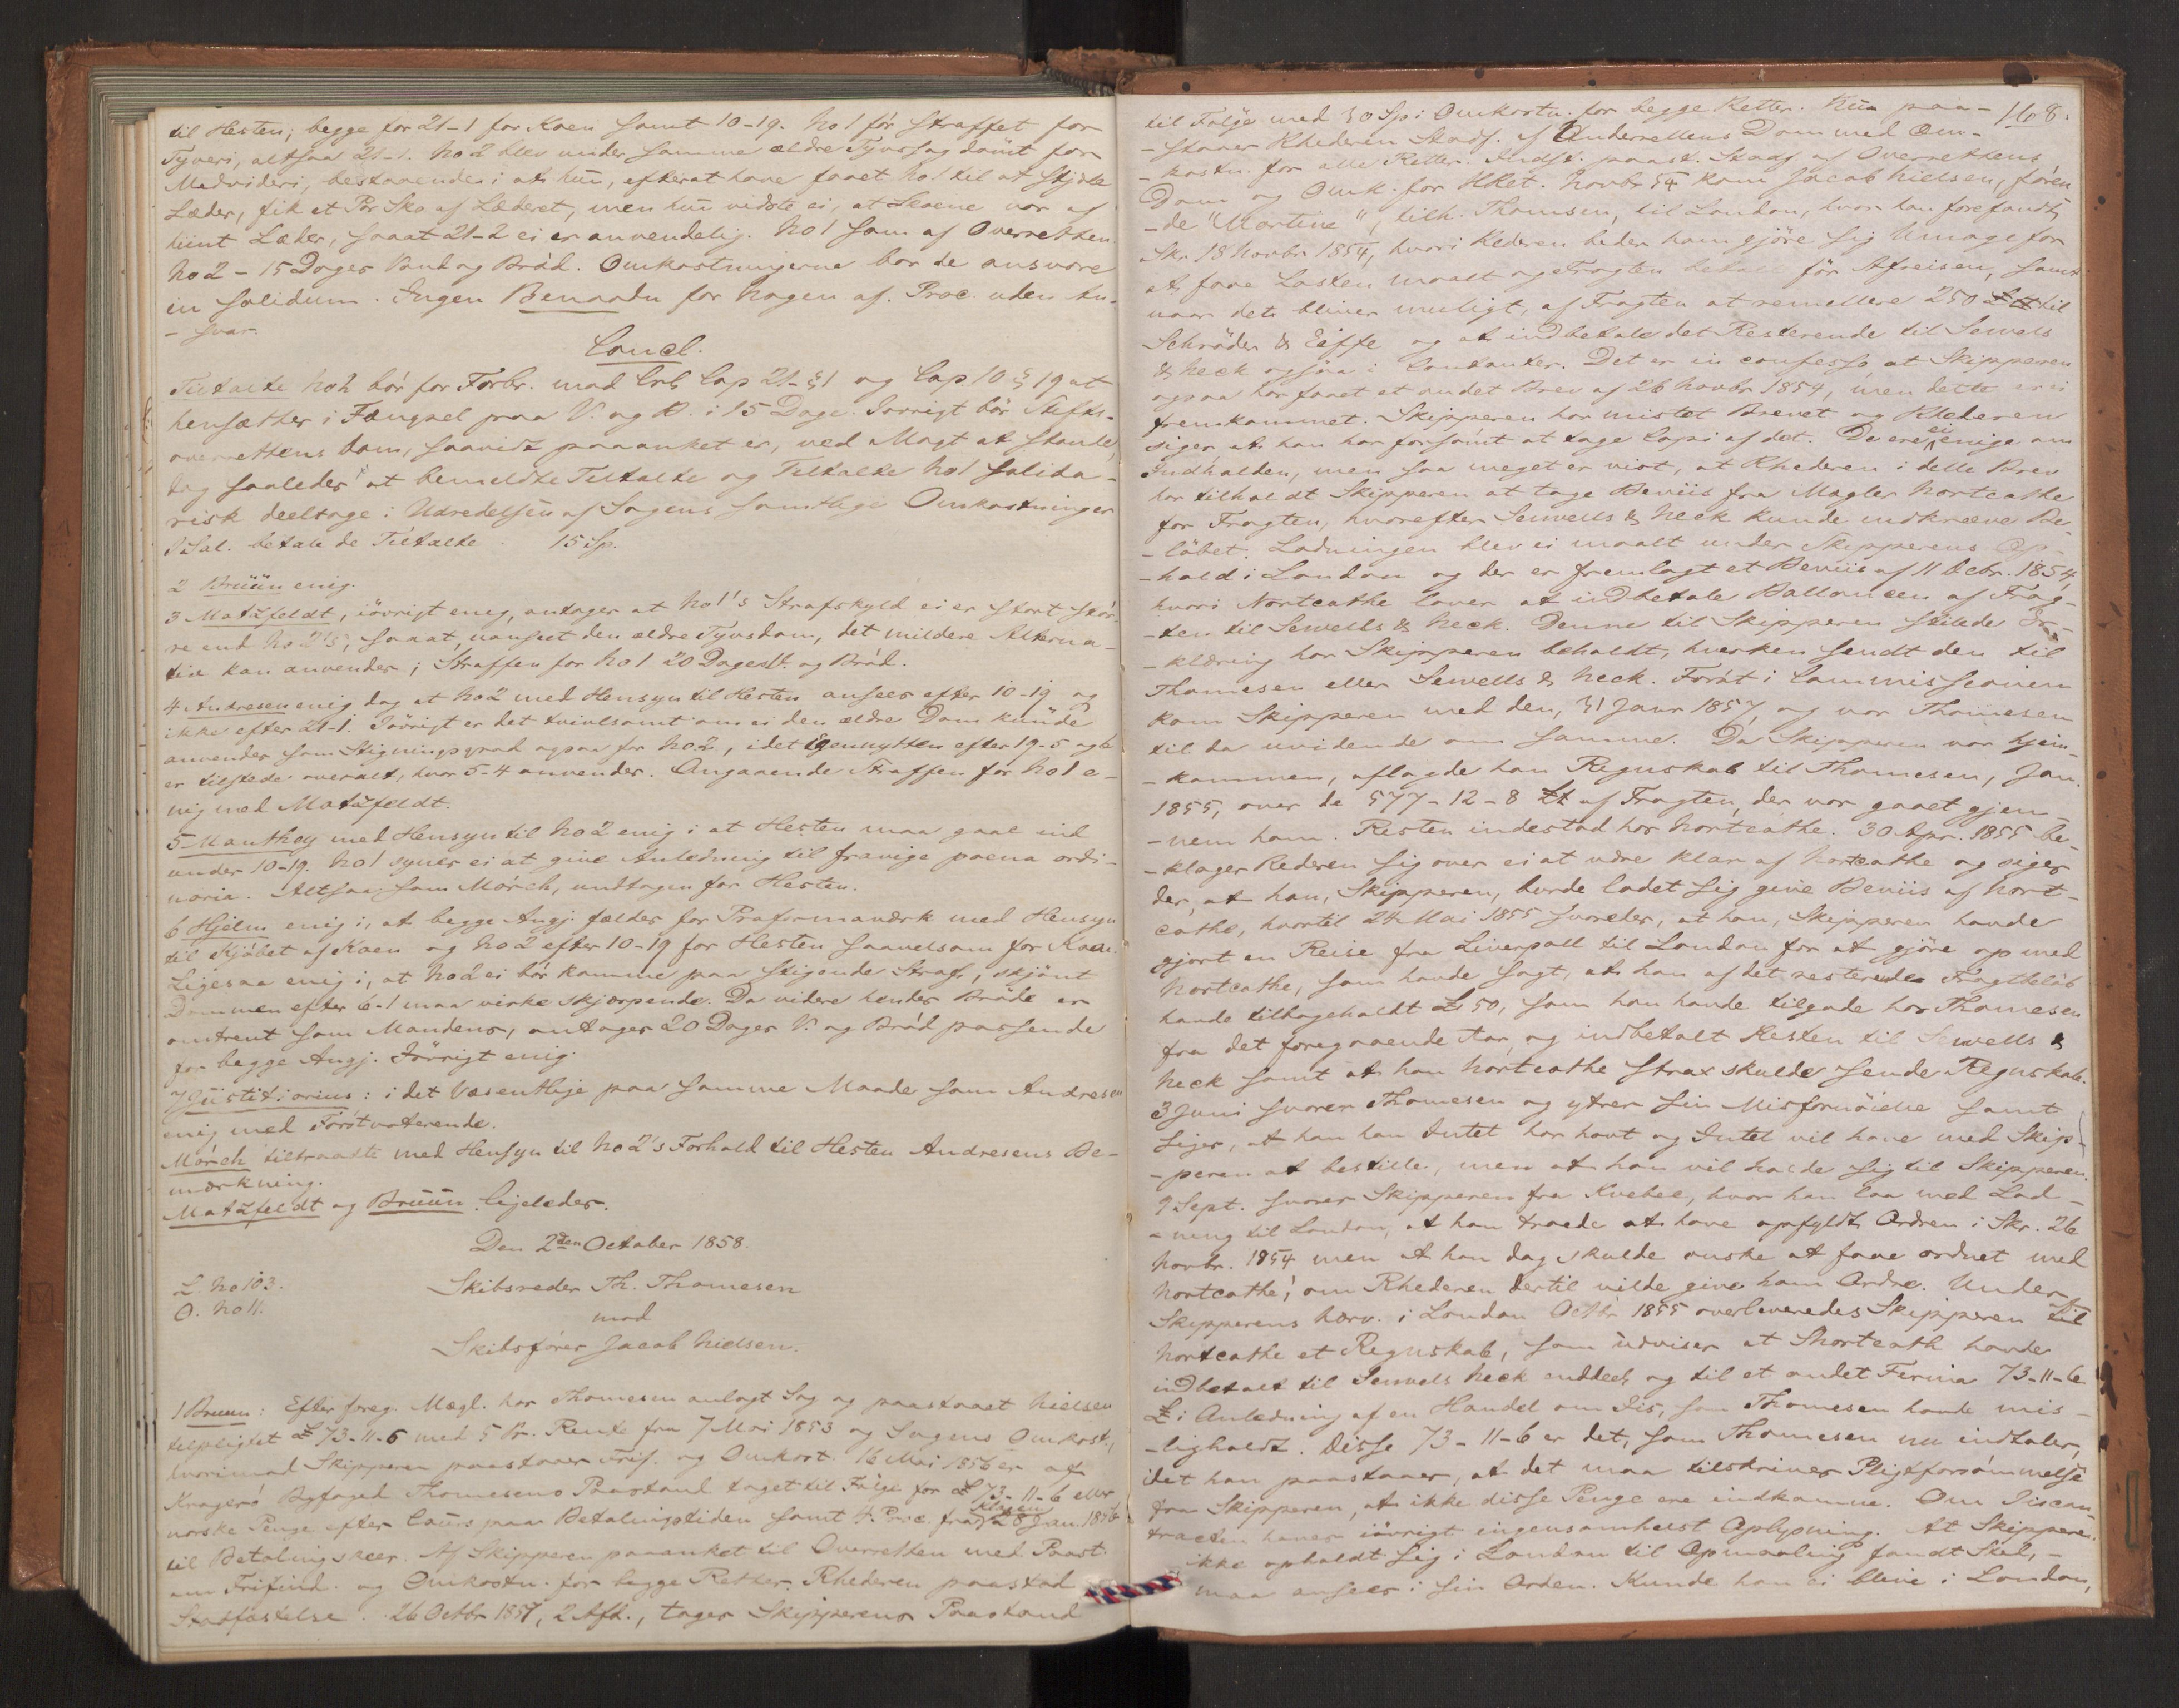 til Hesten; begge for 21-1 for Koen samt 10-19. No 1 før straffet for
Tyveri, altsaa 21-1. No 2 blev under samme ældre Tyvssag dømt for
Medvideri, bestaaende i at hun, efterat have faaet No 1 til at stjæle
Læder, fik et Par Sko af Læderet, men hun vidste ei, at Skoene var af
hiint Læder, saaat 21-2 ei er anvendelig. No 1 som af Overretten.
No 2 - 15 Dages Vand og Brød. Omkostningerne bør de ansvare
in solidum. Ingen Benaadn for Nogen af. Proc. uden An-
- svar.
Concl.
Tiltalte No 2 bør for Forbr. mod Crl Cap 21-§1 og Cap 10 § 19 at
hensættes i Fængsel paa V. og B. i 15 Dage. Iøvrigt bør Stifts-
overrettens Dom, saavidt paaanket er, ved Magt at stande,
dog saaledes at bemeldte Tiltalte og Tiltalte No 1 solida-
risk deeltage i Udredelsen af Sagens samtlige Omkostninger
I Sal. betale de Tiltalte 15 Sp.
2 Bruun enig.
3 Motzfeldt, iøvrigt enig, antager at No 1's Strafskyld ei er stort stør-
re end No 2's, saaat, uanseet den ældre Tyvsdom, det mildere Alterna-
tiv kan anvendes; Straffen for No 1 20 Dages V. og Brød.
4 Andresen enig dog at No 2 med Hensyn til Hesten ansees efter 10-19 og
ikke efter 21-1. Iøvrigt er det tvivlsomt om ei den ældre Dom kunde
anvendes som Stigningsgrad ogsaa for No 2, idet Egennytten efter 19-5 og 6
er tilstede overalt, hvor 5-4 anvendes. Angaaende Straffen for No 1 e-
nig med Motzfeldt.
5 Manthey med Hensyn til No 2 enig i at Hesten maa gaae ind
under 10-19. No 1 synes ei at give Anledning til fravige poena ordi-
naria. Altsaa som Mørch, undtagen for Hesten.
6 Hjelm enig i, at begge Angj. fældes for Proformaværk med Hensyn
til Kjøbet af Koen og No 2 efter 10-19 for Hesten saavelsom for Koen.
Ligesaa enig i, at No 2 ei bør komme paa stigende Straf, skjønt
Dommen efter 6-1 maa virke skjærpende. Da videre hendes Brøde er
omtrent som Mandens, antages 20 Dages V. og Brød passende
for begge Angj. Iøvrigt enig.
7 Justitiarius: i det Væsentlige paa samme Maade som Andresen
enig med Førstvoterende.
Mørch tiltraadte med Hensyn til No 2's Forhold til Hesten Andresens Be-
mærkning.
Motzfeldt og Bruun ligeledes.
Den 2den October 1858.
L. No 103.
O. No 11.
Skibsreder Th. Thomesen
mod
Skibsfører Jacob Nielsen.
1 Bruun: Efter foreg. Mægl. har Thomesen anlagt Sag og paastaaet Nielsen
tilpligtet £ 73-11-6 med 5 Pr. Rente fra 7 Mai 1853 og Sagens Omkost.,
hvorimod Skipperen paastaaer Frif. og Omkost. 16 Mai 1856 er af
Kragerø Bythged Thomesens Paastand taget til Følge for £ 73-11-6 eller
norske Penge efter Cours paa Betalingstiden samt 4 Proc. fra Klagens Dat 8 Jan. 1856
til Betaling skeer. Af Skipperen paaanket til Overretten med Paast.
om Frifind. og Omkostn. for begge Retter. Rhederen paastod
Stadfæstelse. 26 Octbr 1857, 2 Afd., tages Skipperens Paastand
168.
til Følge med 30 Sp i Omkostn. for begge Retter. Nu paa-
- staaer Rhederen Stadf. af Underrettens Dom med Om-
- kostn. for alle Retter. Indst. paast. Stadf. af Overrettens
Dom og Omk. for HRet. Novbr 54 kom Jacob Nielsen, føren
- de "Martine", tilh. Thomsen, til London, hvor han forefandt
Skr. 18 Novbr 1854, hvori Rederen beder ham gjøre sig Umage for
at faae Lasten maalt og Fragten betalt før Afreisen, samt
naar det bliver muligt, af Fragten at remittere 250 £ til
Schröder & Eiffe og at indbetale det Resterende til Sewels
& Neck ogsaa i Contanter. Det er in confesso at Skipperen
ogsaa har faaet et andet Brev af 26 Novbr 1854, men dette er ei
fremkommet. Skipperen har mistet Brevet og Rhederen
siger, at han har forsømt at tage Copi af det. De ere ei enige om
Indholden, men saa meget er vist, at Rhederen i dette Brev
har tilholdt Skipperen at tage Beviis fra Mægler Nortcathe
for Fragten, hvorefter Sewells & Neck kunde indkræve Be-
- løbet. Ladningen blev ei maalt under Skipperens Op-
- hold i London og der er fremlagt et Beviis af 11 Dcbr. 1854,
hvori Nortcathe lover at indbetale Ballancen af Frag-
- ten til Sewells & Neck. Denne til Skipperen stilede Er-
- klæring har Skipperen beholdt, hverken sendt den til
Thomesen eller Sewells & Neck. Først i Commissionen
kom Skipperen med den, 31 Janr 1857, og var Thomesen
til da uvidende om samme. Da Skipperen var hjem-
- kommen, aflagde han Regnskab til Thomesen, Jan.
1855, over de 577-12-8 £ af Fragten, der var gaaet gjen
- nem ham. Resten indestod hos Nortcathe. 30 Apr. 1855 be-
- klager Rederen sig over ei at være klar af Nortcathe og siger
der, at han, Skipperen, burde ladet sig give Beviis af Nort-
cathe, hvortil 24 Mai 1855 svaredes, at han, Skipperen havde
gjort en Reise fra Liverpoll til London for at gjøre op med
Nortcathe, som havde sagt, at han af det resterende Fragtbeløb
havde tilbageholdt £ 50, som han havde tilgode hos Thomesen
fra det foregaaende Aar, og indbetalt Resten til Sewells &
Neck samt at han Nortcathe strax skulde sende Regnskab.
3 Juni svarer Thomesen og ytrer sin Misfornøielse samt
siger, at han han Intet har havt og Intet vil have med Skip-
- peren at bestille, men at han vil holde sig til Skipperen.
9 Sept. svarer Skipperen fra Kvebec, hvor han laa med Lad-
- ning til London, at han troede at have opfyldt Ordren i Skr. 26
Novbr. 1854 men at han dog skulde ønske at faae ordnet med
Nortcathe, om Rhederen dertil vilde give ham Ordre. Under
Skipperens Nærv. i London Octbr 1855 overleveredes Skipperen til
Nortcathe et Regnskab, som udviser at Nortcath havde
indbetalt til Sewels Neck endeel og til et andet Ferma 73-11-6
£ i Anledning af en Handel om Iis, som Thomesen havde mis-
- ligholdt. Disse 73-11-6 er det, som Thomesen nu indtaler,
idet han paastaaer, at det maa tilskrives Pligtforsømmelse
fra Skipperen, at ikke disse Penge ere indkomne. Om Iiscon-
tracten haves iøvrigt ingensomhelst Oplysning. At Skipperen
ikke opholdt sig i London til Opmaaling fandt Sted, -
maa ansees i sin Orden. Kunde han ei blive i London,